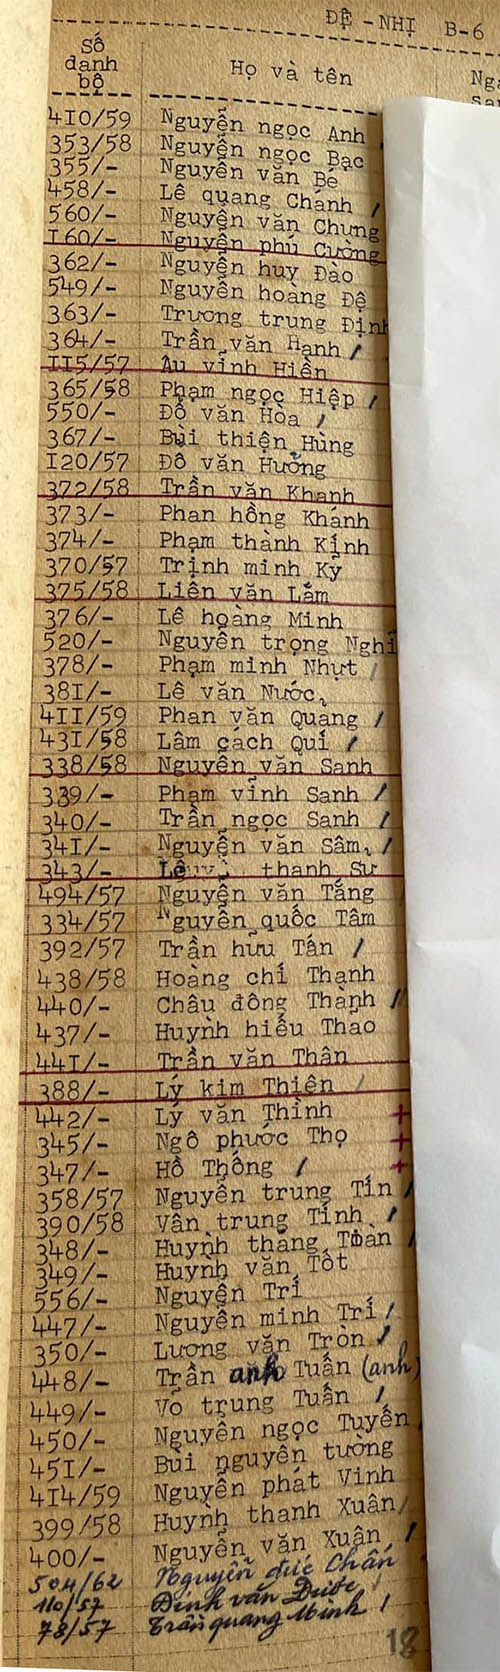 ĐỆ - NHỊ B-6
Số danh bộ Họ và tên
410/59 Nguyễn ngọc Anh
353/58 Nguyễn ngọc Bạc
355/- Nguyễn văn Bé
458/- Lê quang Chánh /
560/- Nguyễn văn Chưng
I60/- Nguyễn phú Cường
362/- Nguyễn huy Đào
549/- Nguyễn hoàng Đệ
363/- Trương trung Định
364/- Trần văn Hạnh /
II5/57 Âu vĩnh Hiền
365/58 Phạm ngọc Hiệp /
550/- Đỗ văn Hòa /
367/- Bùi thiện Hùng
I20/57 Đỗ văn Hưởng
372/58 Trần văn Khanh
373/- Phan hồng Khánh
374/- Phạm thành Kính
370/57 Trịnh minh Kỳ
375/58 Liên văn Lắm
376/- Lê hoàng Minh
520/- Nguyễn trọng Nghĩ
378/- Phạm minh Nhựt /
38I/- Lê văn Nước
4II/59 Phan văn Quang /
43I/58 Lâm cách Quí /
338/58 Nguyễn văn Sanh
339/- Phạm vĩnh Sanh /
340/- Trần ngọc Sanh /
34I/- Nguyễn văn Sâm /
343/- Lê thanh Sư
494/57 Nguyễn văn Tăng
334/57 Nguyễn quốc Tâm
392/57 Trần hữu Tấn /
438/58 Hoàng chí Thanh
440/- Châu đông Thành /
437/- Huỳnh hiếu Thảo
44I/- Trần văn Thân
388/- Lý kim Thiện /
442/- Lý văn Thình +
345/- Ngô phước Thọ +
347/- Hồ Thống / +
358/57 Nguyễn trung Tín /
390/58 Vân trung Tính /
348/- Huỳnh thắng Toàn /
349/- Huỳnh văn Tốt
556/- Nguyễn Trí
447/- Nguyễn minh Trí /
350/- Lương văn Tròn /
448/- Trần anh Tuấn (anh)
449/- Võ trung Tuấn /
450/- Nguyễn ngọc Tuyến
45I/- Bùi nguyên tường
414/59 Nguyễn phát Vinh
399/58 Huỳnh thanh Xuân /
400/- Nguyễn văn Xuân /
504/62 Nguyễn đức Chấn
110/57 Đinh văn Được /
78/57 Trần quang Minh /
18